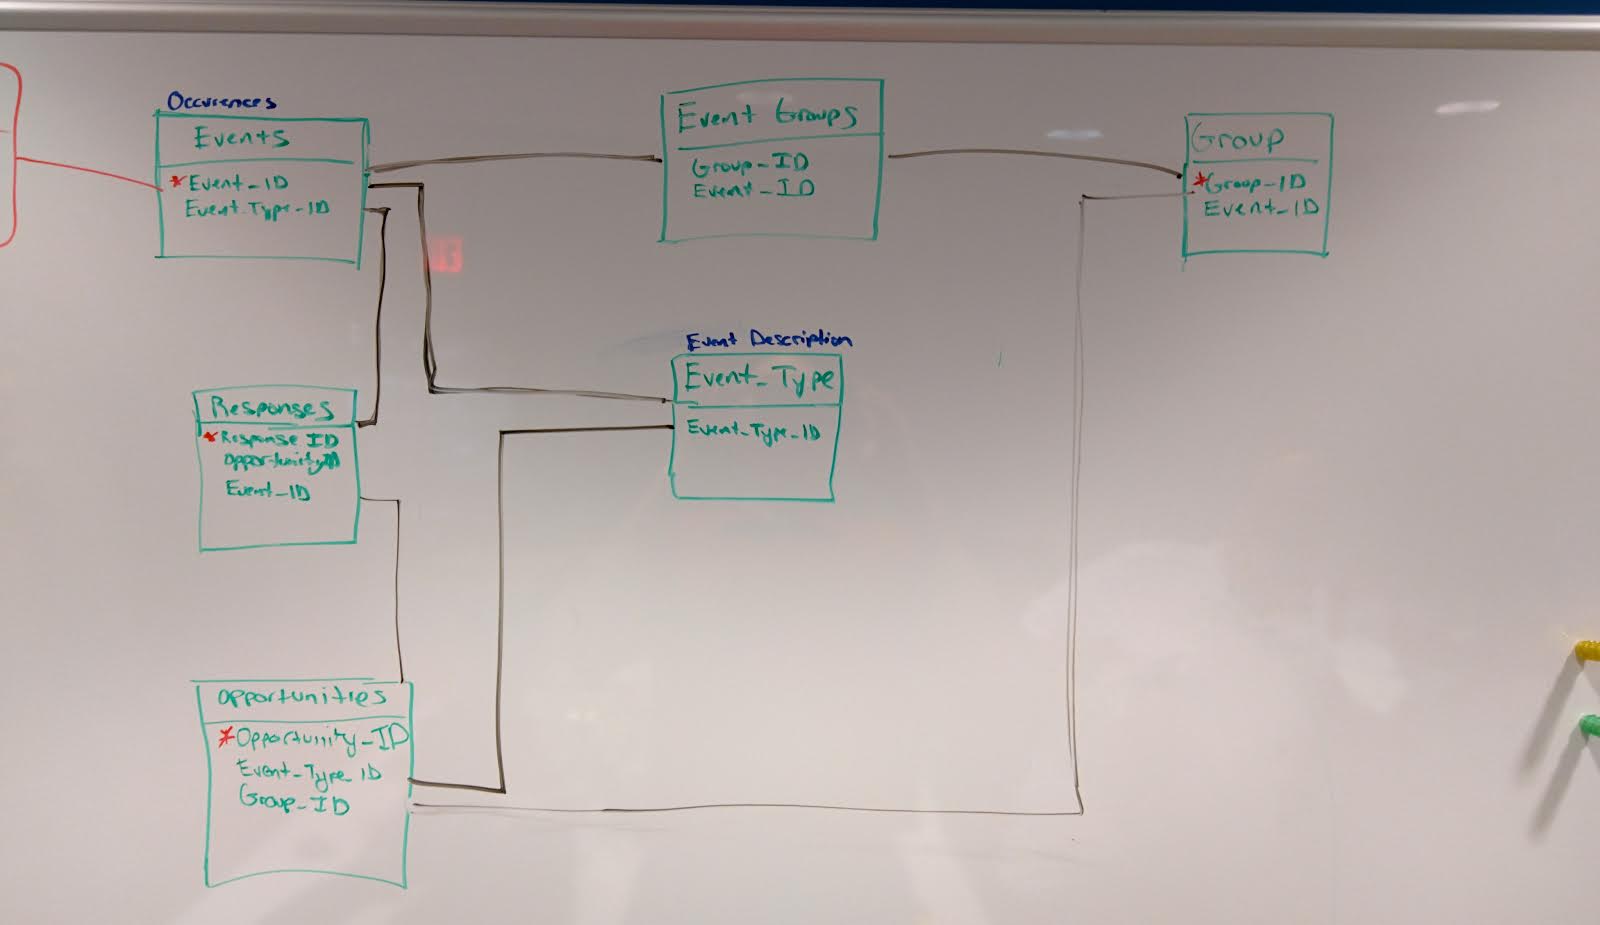 Occurences
Events
*Event_ID
Event_Type_ID
Event Groups
Group_ID
Event_ID
Group
*Group_ID
Event_ID
Event Description
Event_Type
Event_Type_ID
Responses
*Response ID
OpportunityID
Event_ID
Opportunities
*Opportunity_ID
Event_Type_ID
Group_ID